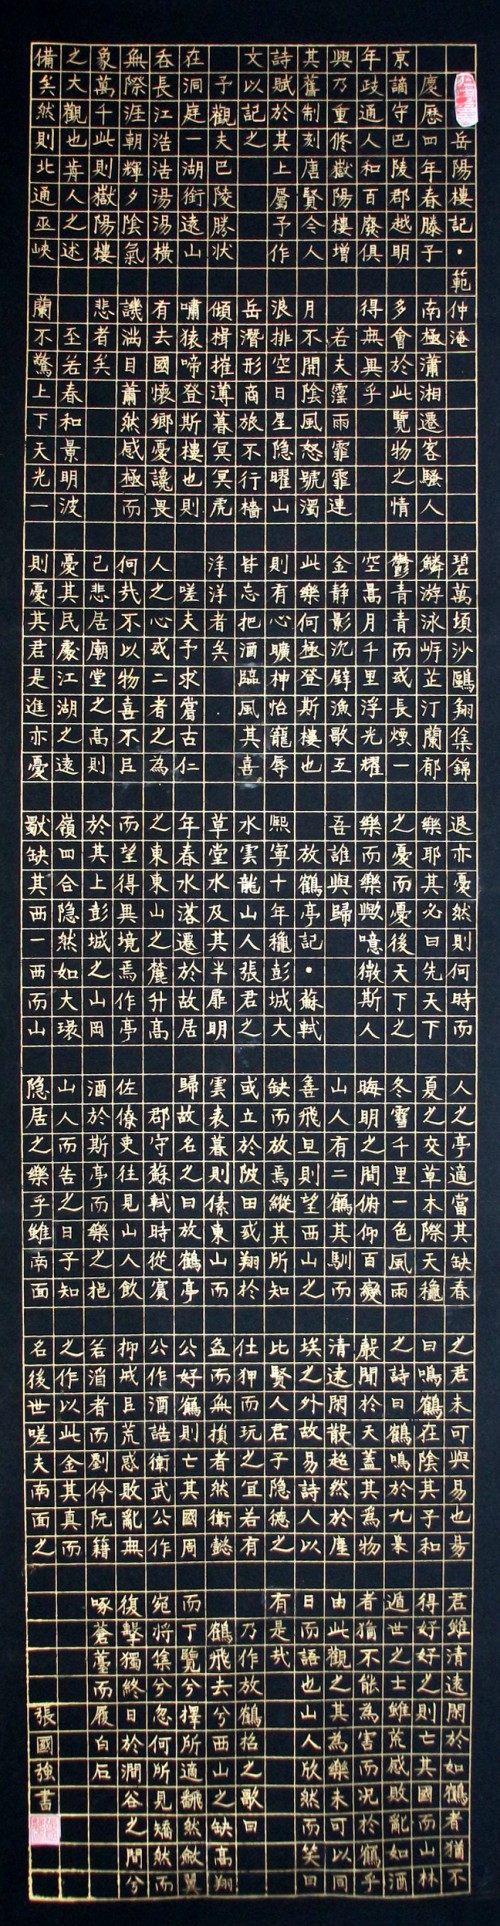 岳陽樓記・範仲淹
慶曆四年春滕子
京謫守巴陵郡越明
年政通人和百廢俱
興乃重修嶽陽樓增
其舊制刻唐賢今人
詩賦於其上屬予作
文以記之
予觀夫巴陵勝狀
在洞庭一湖銜遠山
吞長江浩浩湯湯橫
無際涯朝輝夕陰氣
象萬千此則嶽陽樓
之大觀也前人之述
備矣然則北通巫峽
南極瀟湘遷客騷人
多會於此覽物之情
得無異乎
若夫霪雨霏霏連
月不開陰風怒號濁
浪排空日星隱曜山
岳潛形商旅不行檣
傾楫摧薄暮冥冥虎
嘯猿啼登斯樓也則
有去國懷鄉憂讒畏
譏滿目蕭然感極而
悲者矣
至若春和景明波
蘭不驚上下天光一
碧萬頃沙鷗翔集錦
鱗游泳岸芷汀蘭郁
鬱青青而或長煙一
空暠月千里浮光耀
金靜影沉璧漁歌互
此樂何極登斯樓也
則有心曠神怡寵辱
皆忘把酒臨風其喜
洋洋者矣
嗟夫予求嘗古仁
人之心或二者之為
何哉不以物喜不㠯
己悲居廟堂之高則
憂其民處江湖之遠
則憂其君是進亦憂
退亦憂然則何時而
樂耶其必曰先天下
之憂而憂後天下之
樂而樂歟噫微斯人
吾誰與歸
放鶴亭記・蘇軾
熙寧十年穐彭城大
水雲龍山人張君之
草堂水及其半扉明
年春水落遷於故居
之東東山之麓升高
而望得異境焉作亭
於其上彭城之山岡
嶺四合隱然如大環
獸缺其西一西而山
人之亭適當其缺春
夏之交草木際天穐
冬雪千里一色風雨
晦明之間俯仰百變
山人有二鶴其馴而
善飛旦則望西山之
缺而放焉縱其所知
或立於陂田或翔於
雲表暮則傃東山而
歸故名之曰放鶴亭
郡守蘇軾時從賓
佐僚吏往見山人飲
酒於斯亭而樂之挹
山人而告之曰子知
隱居之樂乎雖南面
之君未可與易也易
曰鳴鶴在陰其子和
之詩曰鶴鳴於九皋
嚴聞於天蓋其為物
清遠閑散超然於塵
埃之外故易詩人以
比賢人君子隱德之
仕狎而玩之宜若有
益而無損者然衛懿
公好鶴則亡其國周
公作酒誥衛武公作
抑戒㠯荒惑敗亂無
若酒者而劉伶阮籍
之作以此全其真而
名後世嗟夫南面之
君雖清遠閑於如鶴者猶不
得好好之則亡其國而山林
遁世之士雖荒惑敗能如酒
者猶不能為害而況於鶴乎
由此觀之其為樂未可以同
日而語也山人欣然而笑曰
有是哉
乃作放鶴招之歌曰
鶴飛去兮西山之缺高翔
而下覽兮擇所適翻然斂翼
宛將集兮忽何所見矯然而
復擊獨終日於澗谷之間兮
啄蒼苔而履白石
張國強書